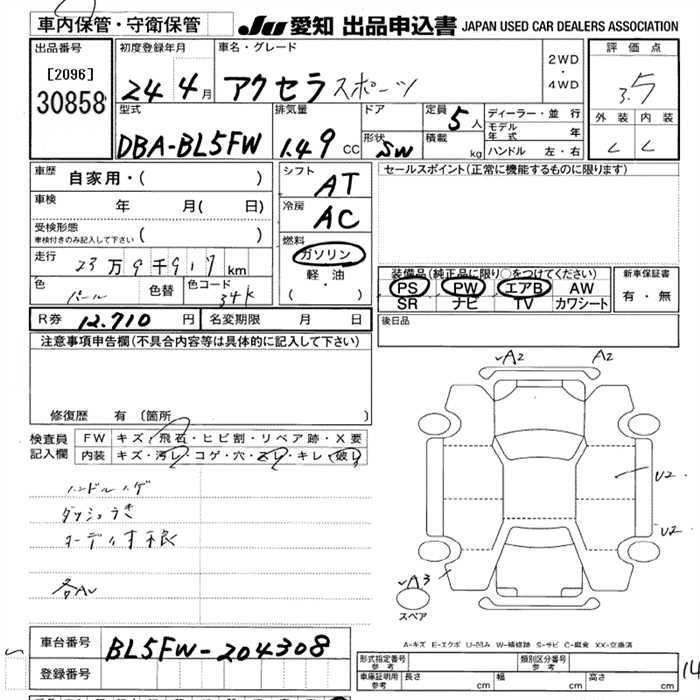 車内保管・守衛保管 JU 愛知 出品申込書 JAPAN USED CAR DEALERS ASSOCIATION
出品番号 初度登録年月 車名・グレード 評価点
[2096] 2WD ・ 4WD
30858 24 4月 アクセラ スポーツ 3.5
型式 排気量 ドア 定員 5人 ディーラー・並行 外装 内装
DBA-BL5FW 1.49 CC 形状 SW 積載 kg モデル年式 年 C C
ハンドル 左・右
車歴 自家用・( ) シフト AT セールスポイント(正常に機能するものに限ります)
車検 年 月( 日) 冷房 AC
受検形態 ( )
車検付きのみ記入して下さい 燃料 ガソリン
走行 23万9千917km 軽・油 装備品(純正品に限り○をつけてください) 新車保証書
色 パール 色替 色コード 34K ( ・ ) PS PW エアB AW 有・無
SR ナビ TV カワシート
R券 12,710円 名変期限 月 日 後日品
注意事項申告欄(不具合内容等は具体的に記入して下さい)
√A2 A2
修復歴 有(箇所 )
検査員 FW キズ・飛石・ヒビ割・リペア跡・X要
記入欄 内装 キズ・汚レ・コゲ・穴・スレ・キレ・破レ
ハンドルハゲ U2
ダッシュうき
オーディオ欠 U2
各AU
√A3
スペア
A-キズ E-エクボ U-凹み W-補修跡 S-サビ C-腐食 XX-交換済
車台番号 BL5FW-204308
登録番号 形式指定番号 参考 類別区分番号 参考
車庫証明用 参考 長さ cm 幅 cm 高さ cm 14